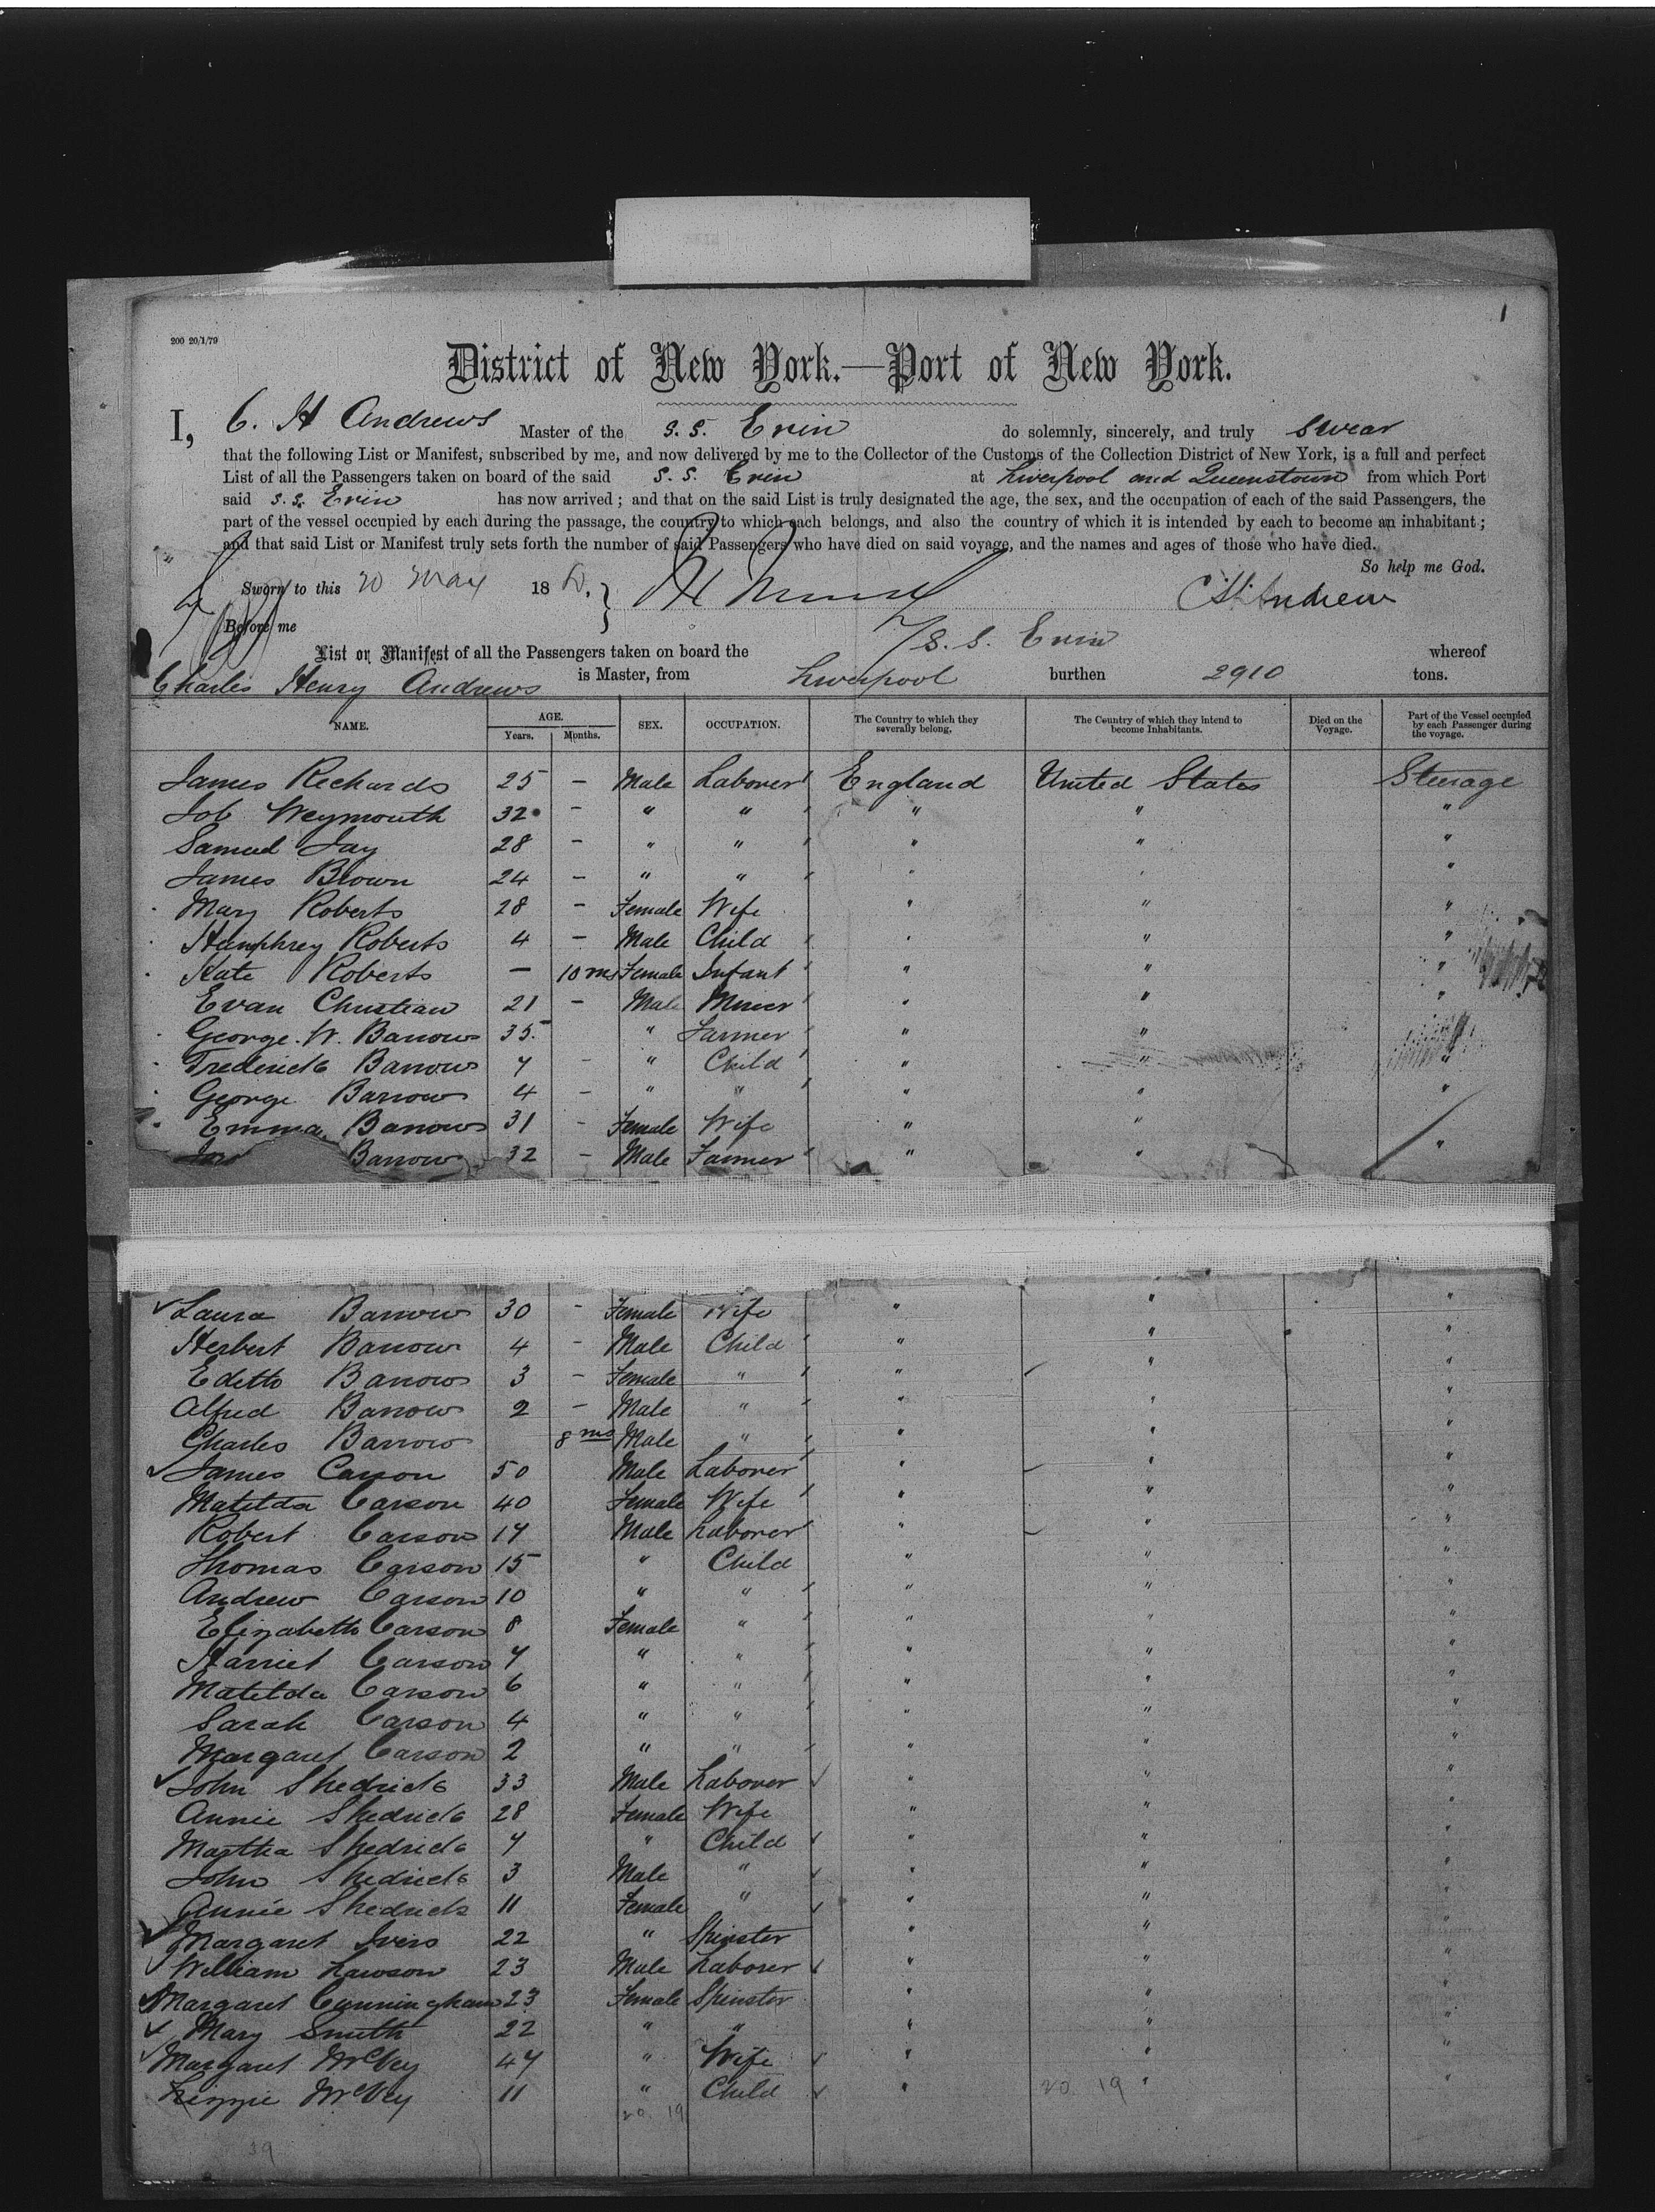 1
200 20/1/79
District of New York.—Port of New York.
I, C. H Andrews Master of the S.S. Erin do solemnly, sincerely, and truly swear
that the following List or Manifest, subscribed by me, and now delivered by me to the Collector of the Customs of the Collection District of New York, is a full and perfect
List of all the Passengers taken on board of the said S. S. Erin at Liverpool and Queenstown from which Port
said S.S. Erin has now arrived; and that on the said List is truly designated the age, the sex, and the occupation of each of the said Passengers, the
part of the vessel occupied by each during the passage, the country to which each belongs, and also the country of which it is intended by each to become an inhabitant;
and that said List or Manifest truly sets forth the number of said Passengers who have died on said voyage, and the names and ages of those who have died.
So help me God.
Sworn to this 20 May 18 CH Andrew
Before me
List or Manifest of all the Passengers taken on board the S.S. Erin whereof
Charles Henry Andrews is Master, from Liverpool burthen 2910 tons.
NAME. AGE. Years. Months. SEX. OCCUPATION. The Country to which they severally belong. The Country of which they intend to become Inhabitants. Died on the Voyage. Part of the Vessel occupied by each Passenger during the voyage.
James Richards 25 — Male Laborer England United States Steerage
Job Weymouth 32 — " " " " "
Samuel Jay 28 — " " " " "
James Brown 24 — " " " " "
Mary Roberts 28 — Female Wife " " "
Humphrey Roberts 4 — Male Child " " "
Kate Roberts — 10 ms Female Infant " " "
Evan Christian 21 — Male Miner " " "
George. W. Barrow 35 " Farmer " " "
Frederick Barrow 7 — " Child " " "
George Barrow 4 — " " " " "
Emma Barrow 31 - Female Wife " " "
Barrow 32 — Male Farmer " " "
Laura Barrow 30 - Female Wife " " "
Herbert Barrow 4 — Male Child " " "
Edith Barrow 3 — Female " " " "
Alfred Barrow 2 — Male " " " "
Charles Barrow 8 ms Male " " " "
James Carson 50 Male Laborer " " "
Matilda Carson 40 Female Wife " " "
Robert Carson 17 Male Laborer " " "
Thomas Carson 15 " Child " " "
Andrew Carson 10 " " " " "
Elizabeth Carson 8 Female " " " "
Harriet Carson 7 " " " " "
Matilda Carson 6 " " " " "
Sarah Carson 4 " " " " "
Margaret Carson 2 " " " " "
John Shedrick 33 Male Laborer " " "
Annie Shedrick 28 Female Wife " " "
Martha Shedrick 7 " Child " " "
John Shedrick 3 Male " " " "
Annie Shedrick 11 Female " " " "
Margaret Ivers 22 " Spinster " " "
William Lawson 23 Male Laborer " " "
Margaret Cunningham 23 Female Spinster " " "
Mary Smith 22 " " " " "
Margaret McVey 47 " Wife " " "
Lizzie McVey 11 " Child " " "
20. 19
20 19
39